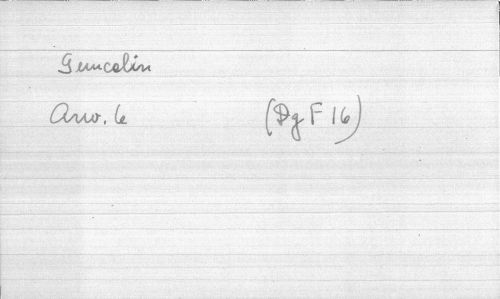 Guncelin
Arw. 6 (Dg F 16)